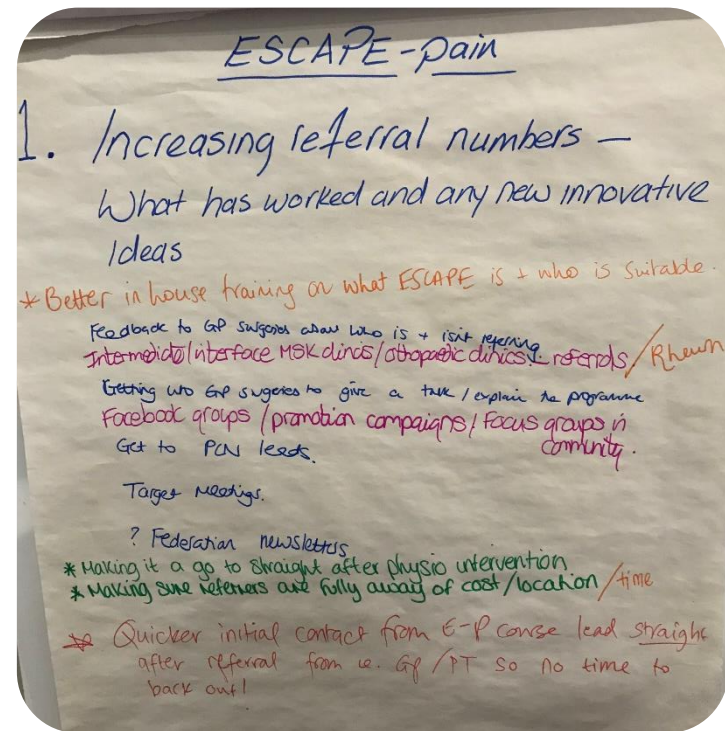 ESCAPE-pain
1. Increasing referral numbers –
What has worked and any new innovative
Ideas
* Better in house training on what ESCAPE is + who is suitable.
Feedback to GP surgeries about who is + isn't referring
Intermediate/interface MSK clinics/orthopaedic clinics referrals / Rheum
Getting into GP surgeries to give a talk / explain the programme
Facebook groups / promotion campaigns / focus groups in
community.
Get to PCN leads.
Target Meetings.
? Federation newsletters
* Making it a go to straight after physio intervention
* Making sure referrers are fully away of cost/location /time
* Quicker initial contact from E-P course lead straight
after referral from ie. GP/PT so no time to
back out!